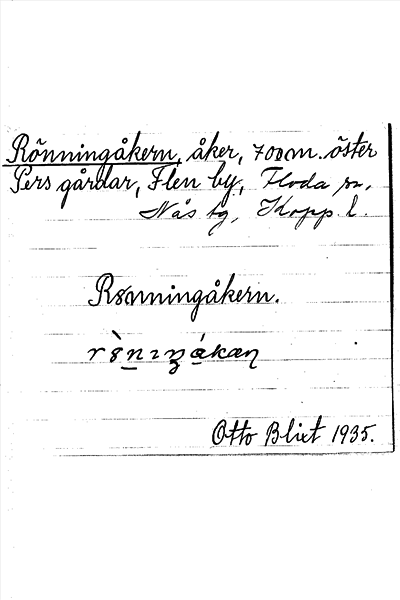 Rönningåkern, åker, 700 m. öster
Pers gårdar, Flen by, Floda sn,
Nås tg, Kopp. l.
Rönningåkern.
Otto Blixt 1935.